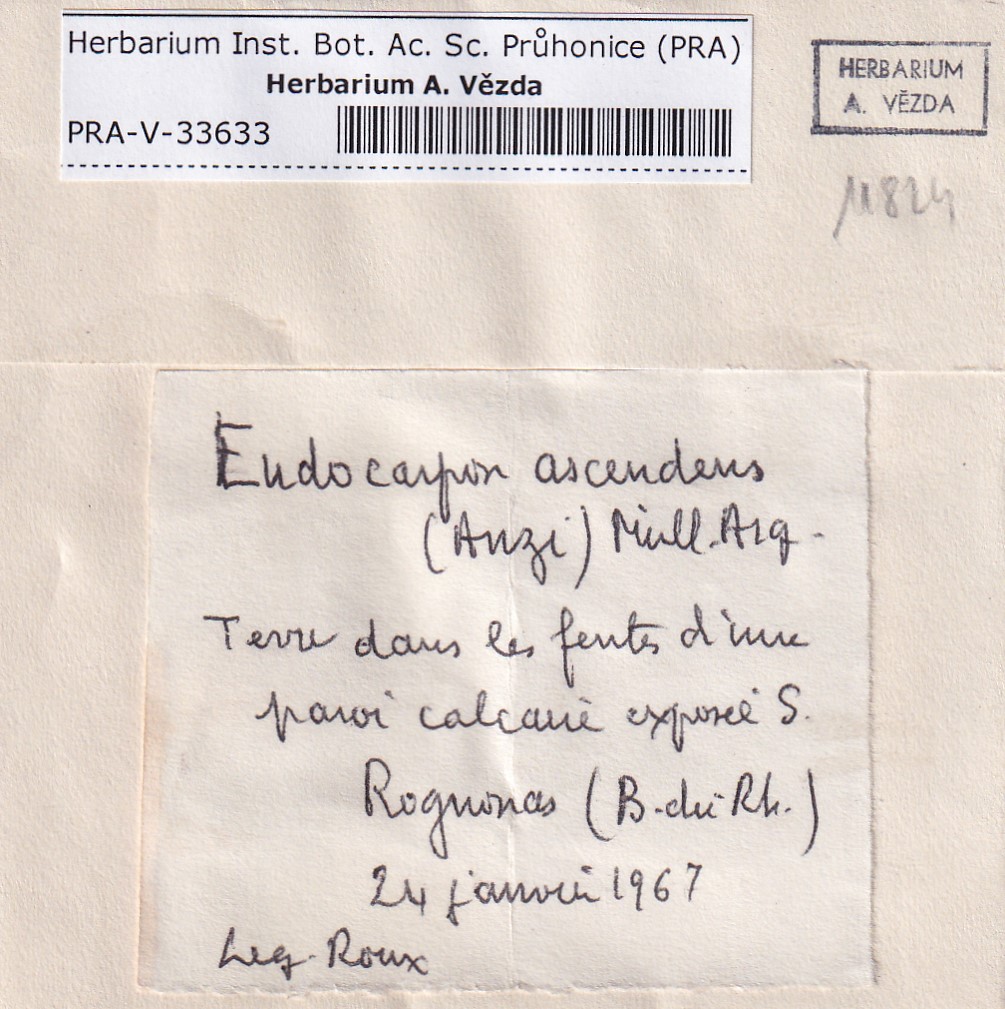 Herbarium Inst. Bot. Ac. Sc. Průhonice (PRA)
Herbarium A. Vězda
PRA-V-33633
HERBARIUM
A. VĚZDA
11824
Endocarpon ascendens
(Anzi) Müll. Arg.
Terre dans les fentes d'une
paroi calcaire exposée S.
Rognonas (B. du Rh.)
24 janvier 1967
Leg. Roux